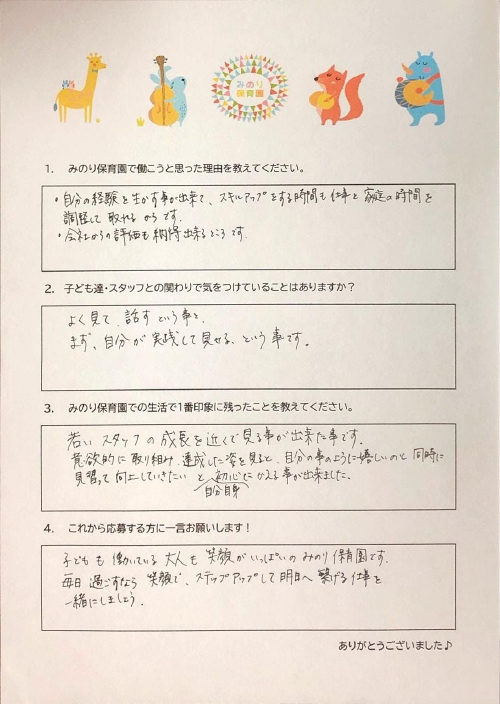 みのり
保育園
1. みのり保育園で働こうと思った理由を教えてください。
・自分の経験を生かす事が出来て、スキルアップをする時間も仕事と家庭の時間を
調整して取れるからです。
・会社からの評価も納得出来るところです。
2. 子ども達・スタッフとの関わりで気をつけていることはありますか？
よく見て、話すという事と、
まず、自分が実践して見せる、という事です。
3. みのり保育園での生活で1番印象に残ったことを教えてください。
若いスタッフの成長を近くで見る事が出来た事です。
意欲的に取り組み、達成した姿を見ると、自分の事のように嬉しいのと同時に
見習って向上していきたいと初心にかえる事が出来ました。
自分自身
4. これから応募する方に一言お願いします！
子どもも働いている大人も笑顔がいっぱいのみのり保育園です。
毎日過ごすなら笑顔で、ステップアップして明日へ繋げる仕事を
一緒にしましょう。
ありがとうございました♪